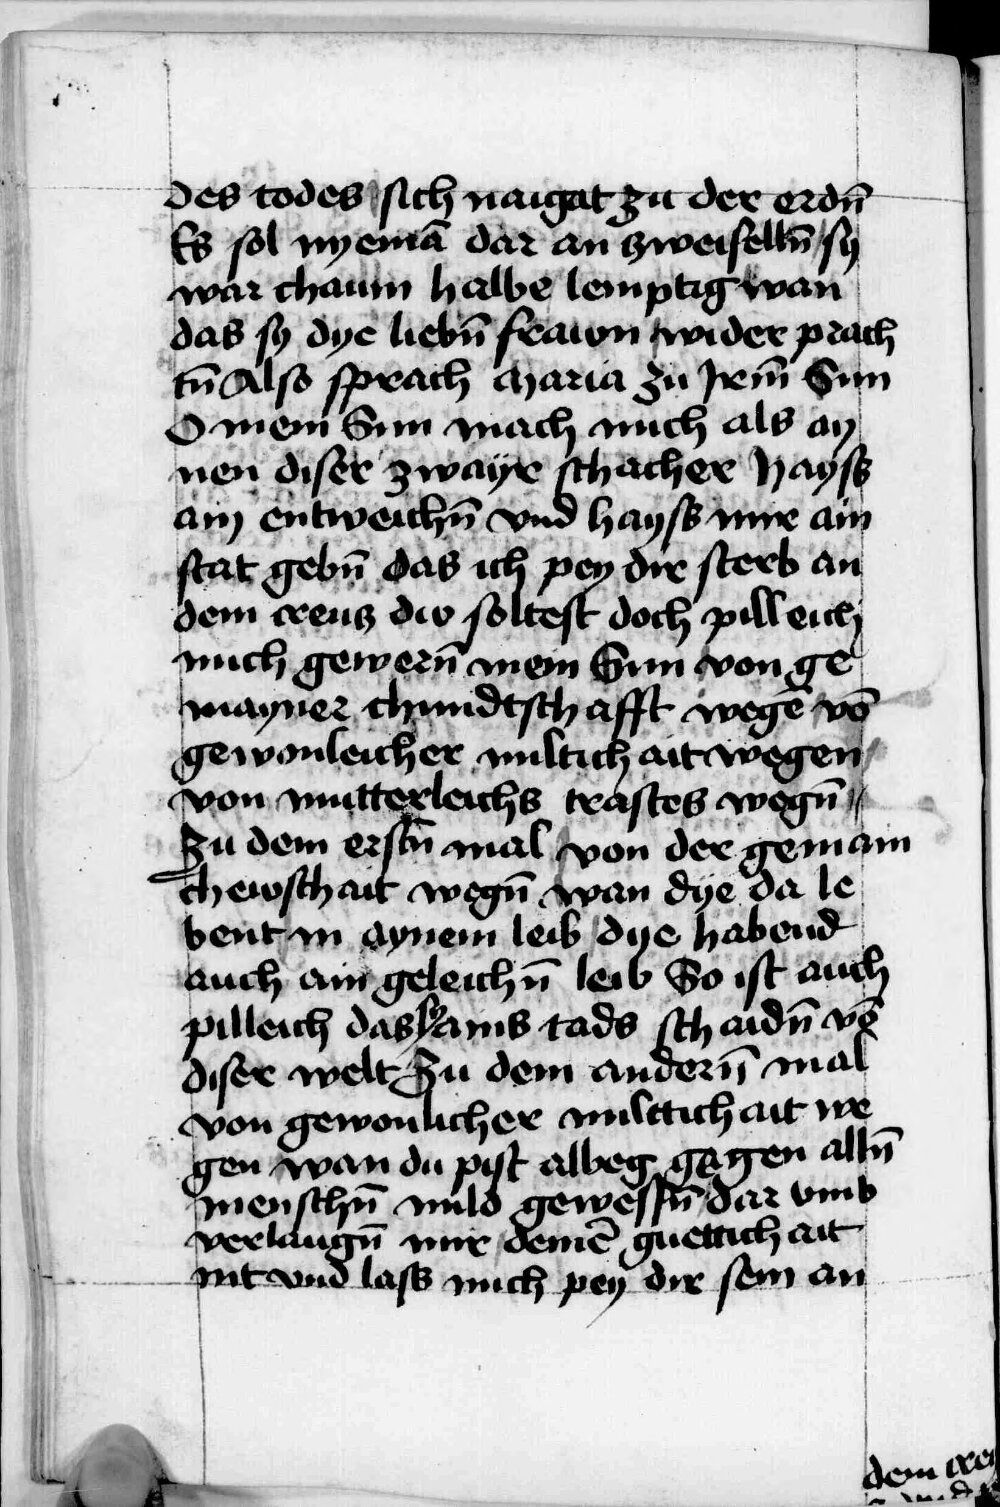 des todes sich naigat zu der erdn̄
Es sol nyemā dar an zweifelln̄ sy
war chaum halbe lemptig wan
das sy dye liebn̄ frawn wider prach
tn̄ Also sprach maria zu Jrm̄ Sun
O mein Sun mach mich als ay
nen diser zwayr schacher hayss
ain entweichn̄ vnd hayss mir ain
stat gebn̄ das ich pey dir sterb an
dem creutz dw soltest doch pilleich
mich gewern̄ mein Sun von ge
mayner chundtschafft wegē vō
gewonleicher miltichait wegen
von mutterleichs trastes wegn̄
Zu dem erstn̄ mal von der gemain
chewschait wegn̄ wan dye da le
bent in aynem leib dye habend
auch ain geleichn̄ leib So ist auch
pilleich das sy ains tads schaidn̄ vō
diser welt Zu dem andern̄ mal
von gewonlicher milttichait we
gen wan du pist albeg gegen alln̄
menschn̄ mild gewessn̄ dar vmb
verlaugn̄ mir deinē guettichait
nit vnd lass mich pey dir sein an
dem creu